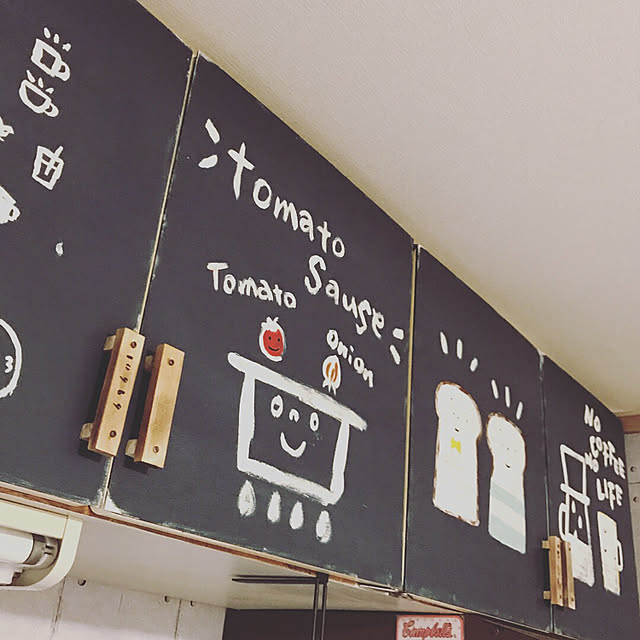 tomato
Sauce
Tomato
onion
NO
COFFEE
NO
LIFE
3
Campbell's